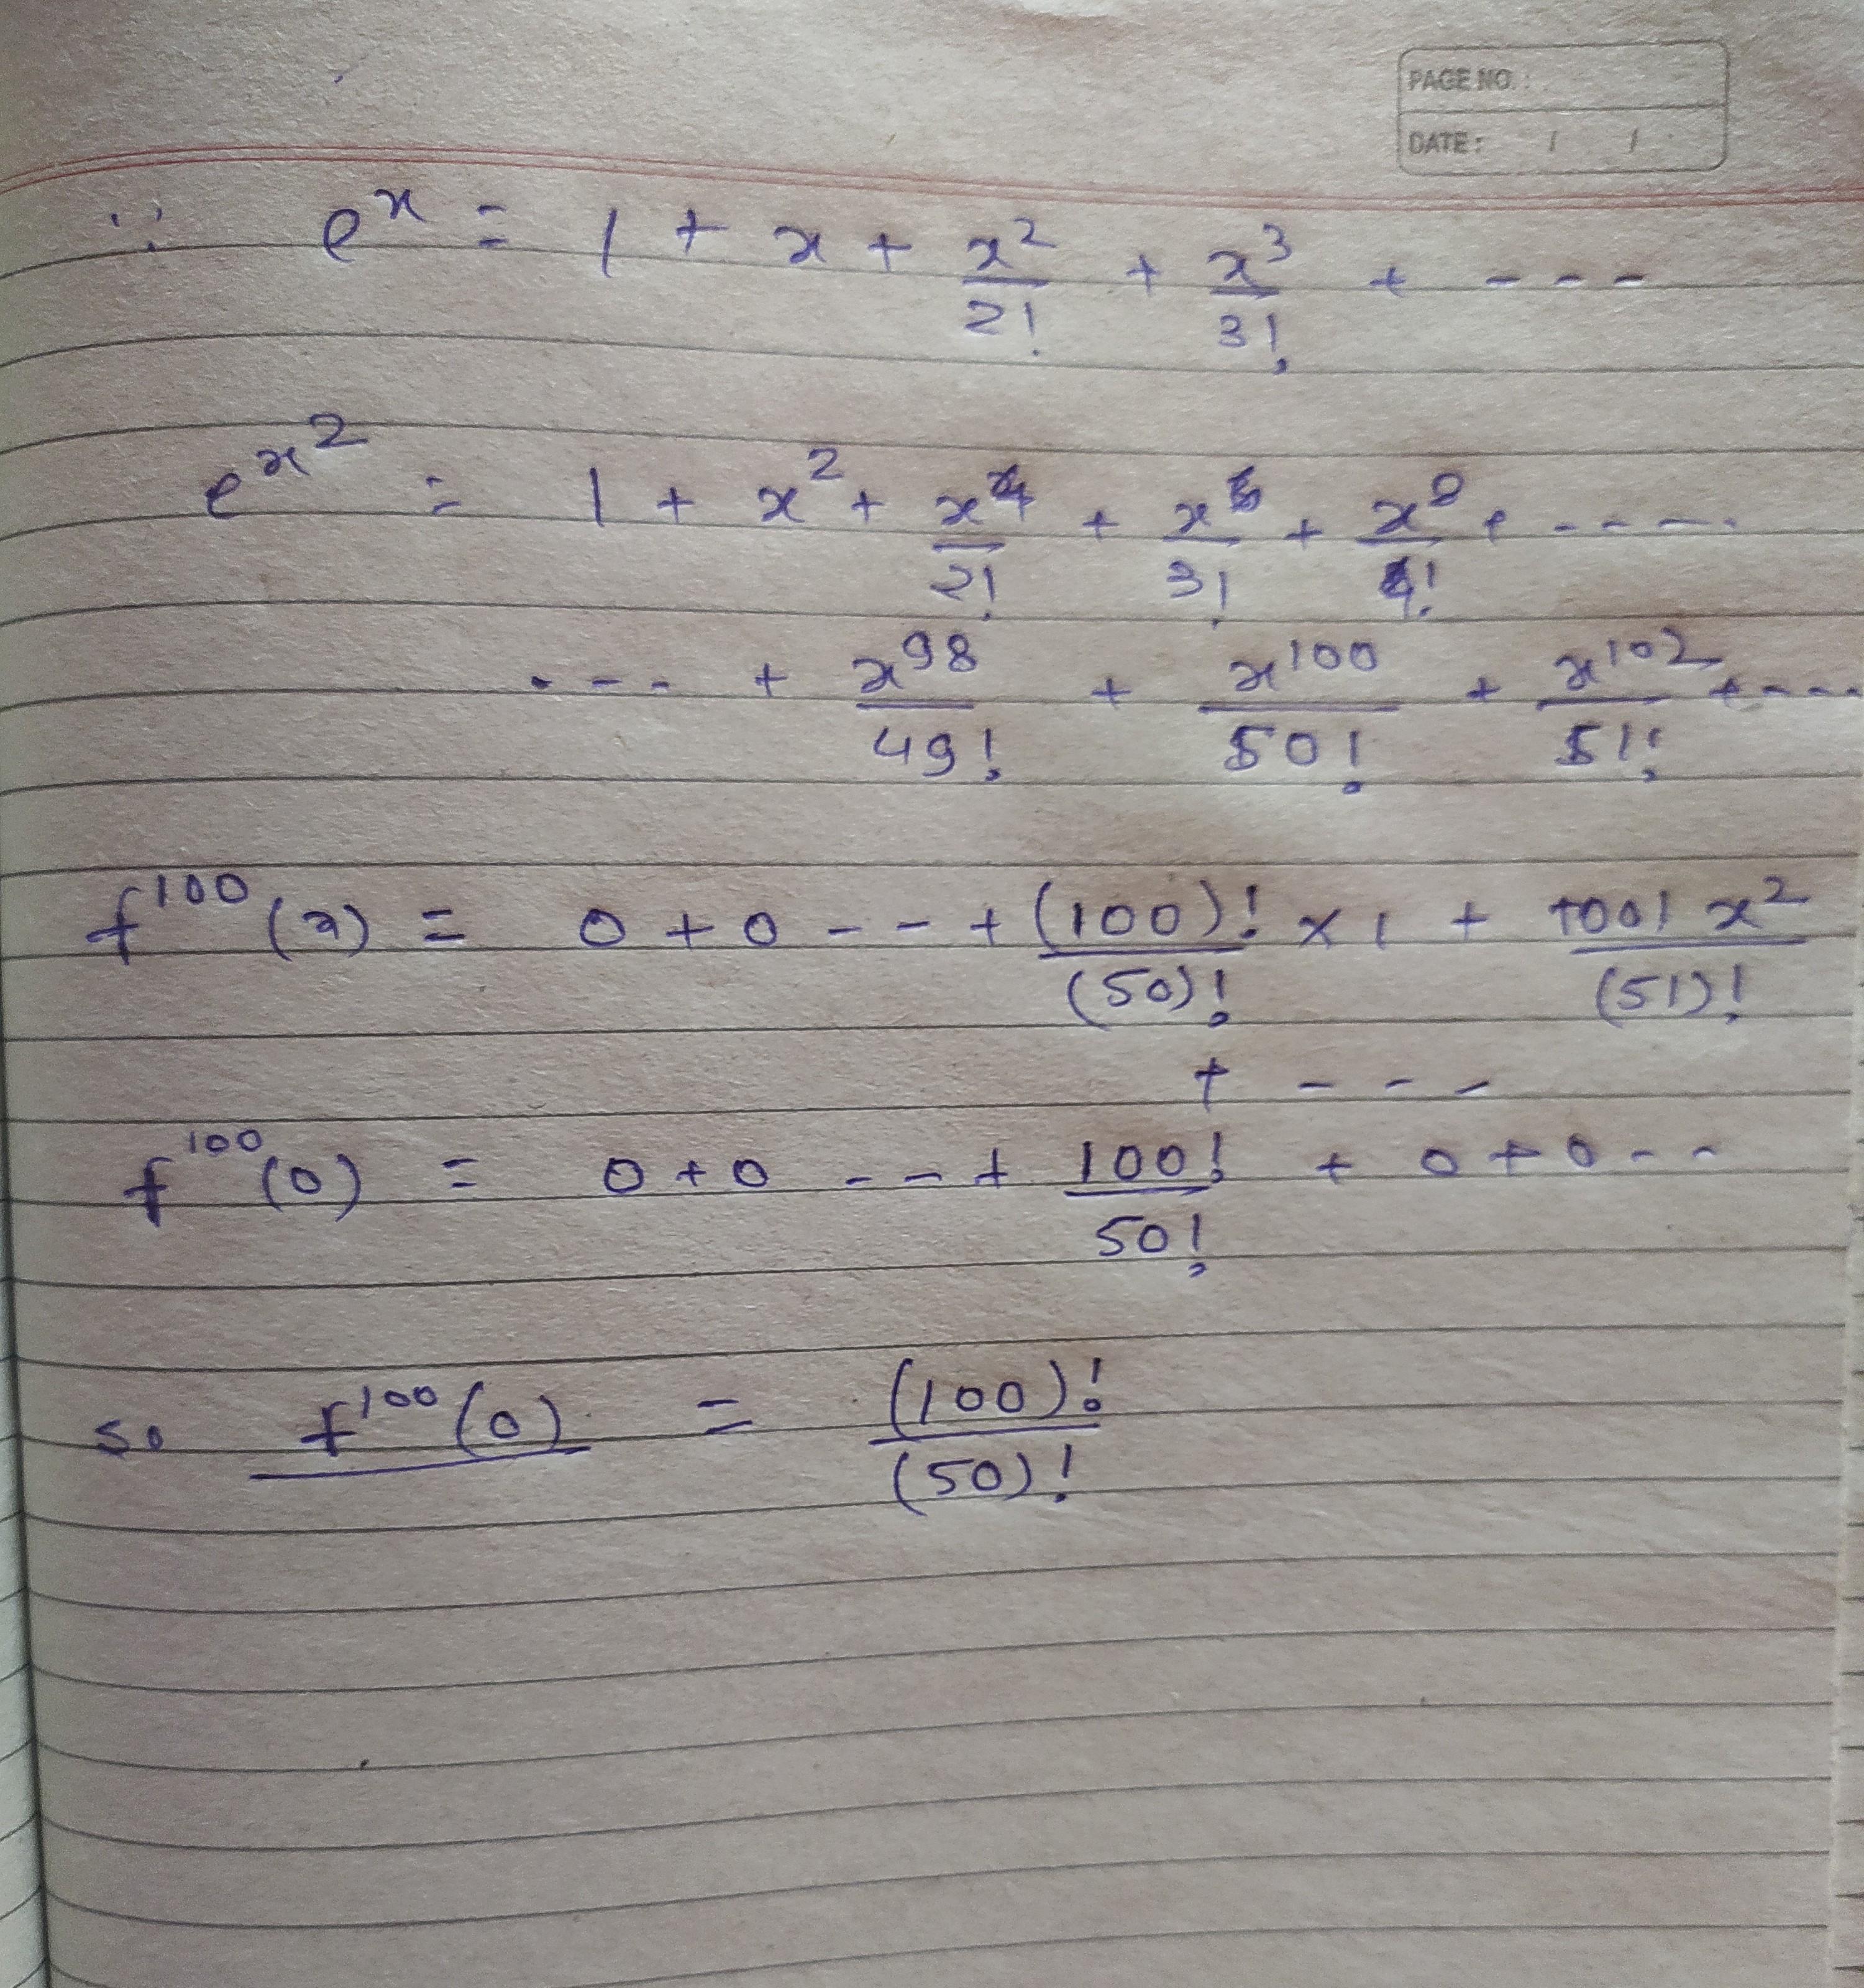 PAGE NO. :
DATE : / /
∵ e^x = 1 + x + x^2/2! + x^3/3! + - - -
e^x^2 = 1 + x^2 + x^4/2! + x^6/3! + x^8/4! + - - - -
- - - + x^98/49! + x^100/50! + x^102/51! + - - - -
f^100 (x) = 0 + 0 - - + (100)!/(50)! × 1 + 100! x^2/(51)!
+ - - -
f^100 (0) = 0 + 0 - - + 100!/50! + 0 + 0 - -
so f^100 (0) = (100)!/(50)!